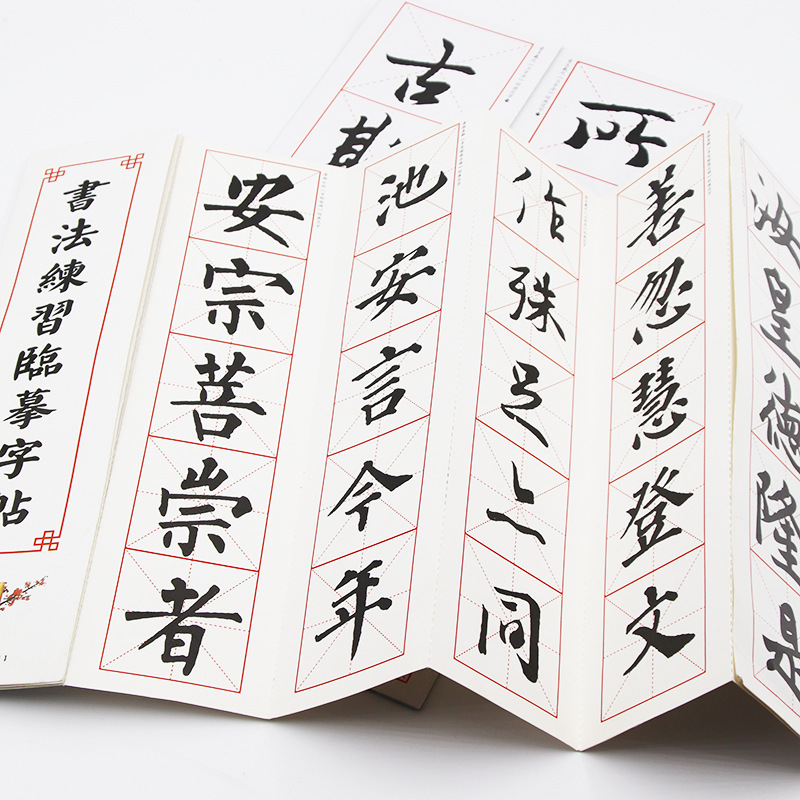 書法練習臨摹字帖
安宗菩崇者
池安言今年
作殊足上同
善忽慧登文
汝皇德隆是
古斯
所
1